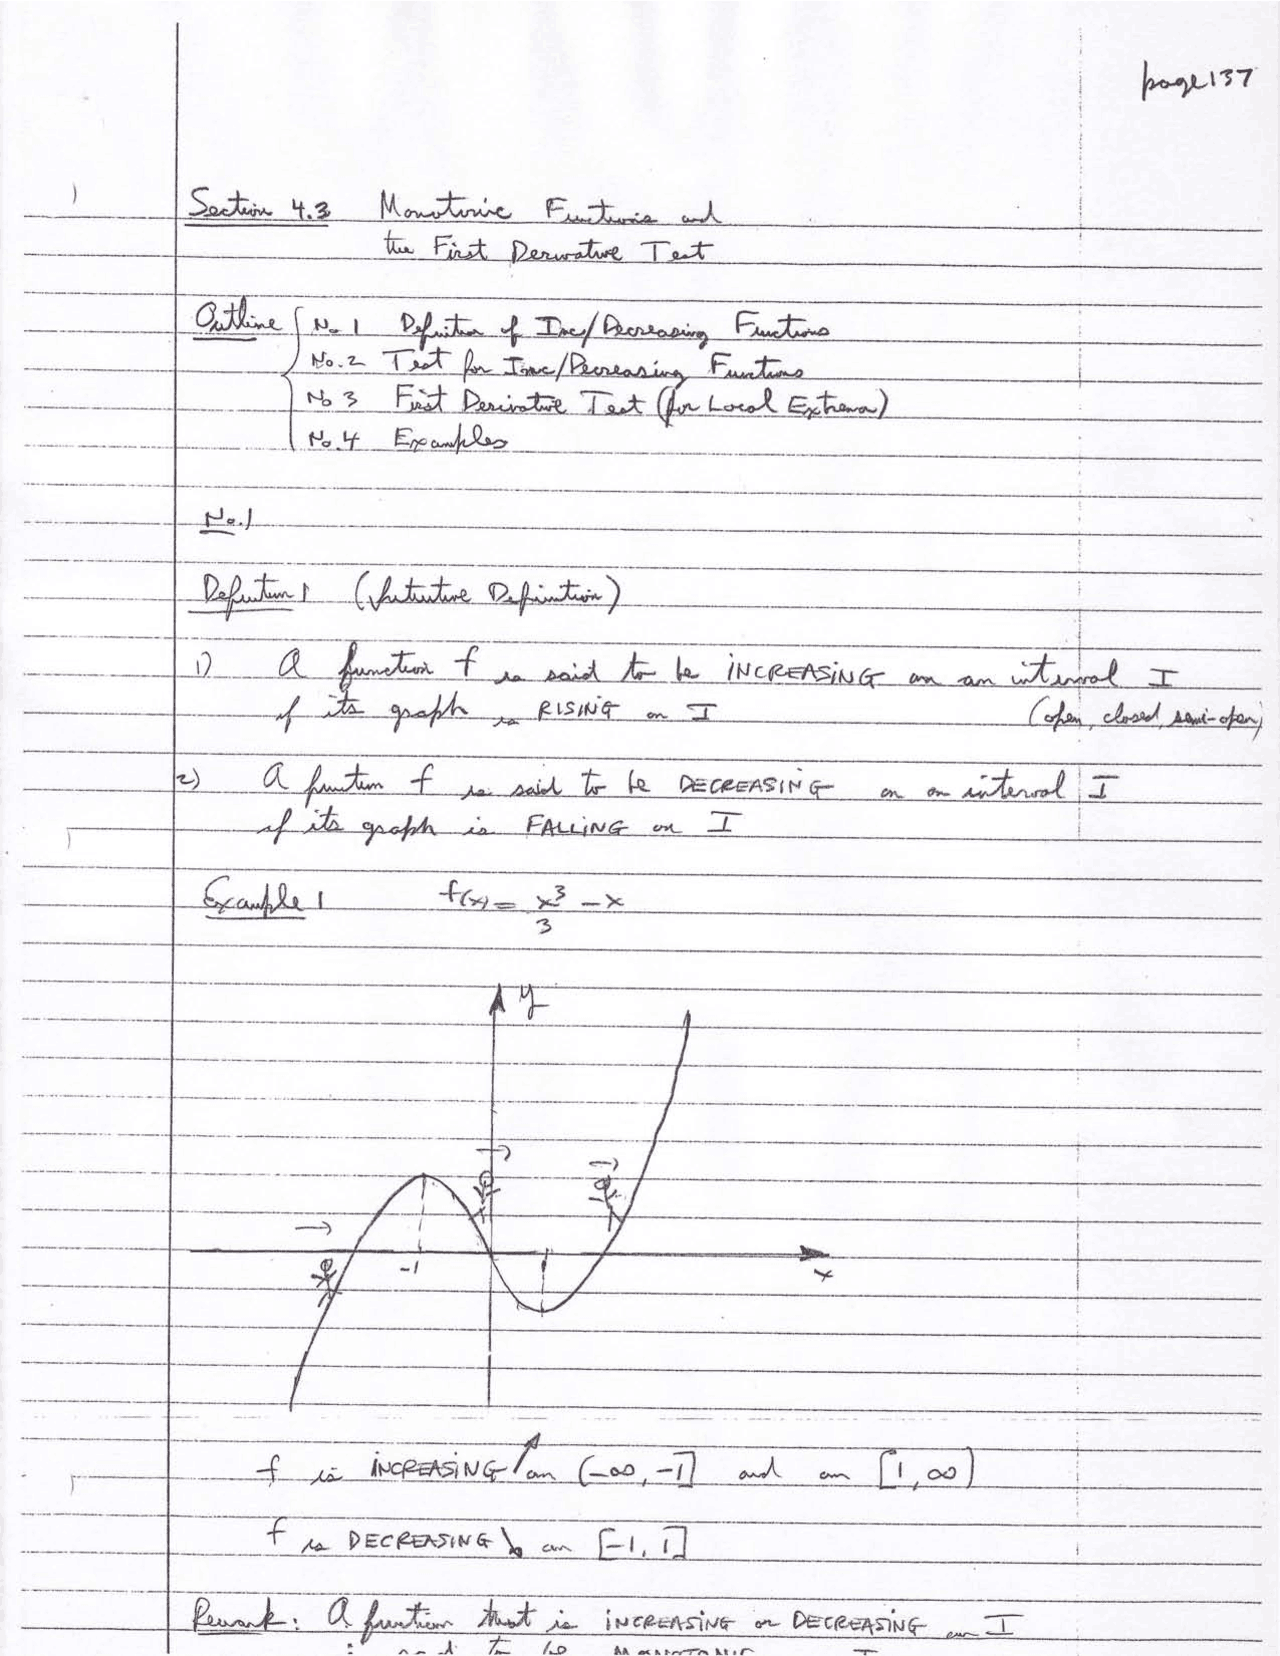 page 137
Section 4.3 Monotonic Functions and
the First Derivative Test
Outline { No 1 Definition of Inc/Decreasing Functions
No. 2 Test for Inc/Decreasing Functions
No 3 First Derivative Test (for Local Extrema)
No. 4 Examples
No. 1
Definition 1 (Intuitive Definition)
1) A function f is said to be INCREASING on an interval I
if its graph is RISING on I (open, closed, semi-open)
2) A function f is said to be DECREASING on an interval I
if its graph is FALLING on I
Example 1 f(x) = x³/3 - x
y
-1 1
x
f is INCREASING ↗ on (-∞, -1] and on [1, ∞)
f is DECREASING ↘ on [-1, 1]
Remark: A function that is INCREASING or DECREASING on I
is said to be MONOTONIC on I